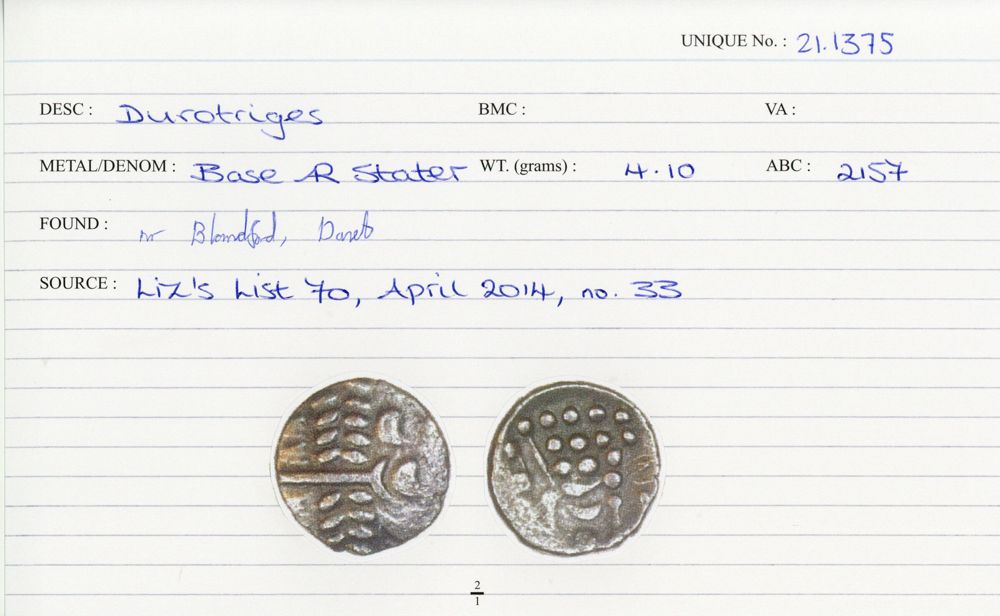 UNIQUE No. : 21.1375
DESC : Durotriges BMC : VA :
METAL/DENOM : Base AR Stater WT. (grams) : 4.10 ABC : 2157
FOUND : nr Blandford, Dorset
SOURCE : Liz's List 70, April 2014, no. 33
2
1